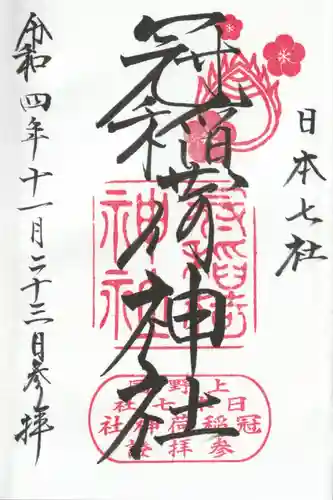 日本七社
冠稲荷神社
令和四年十一月二十三日参拝
冠稲荷
神社
上野國
日本七社
冠稲荷神社
参拝